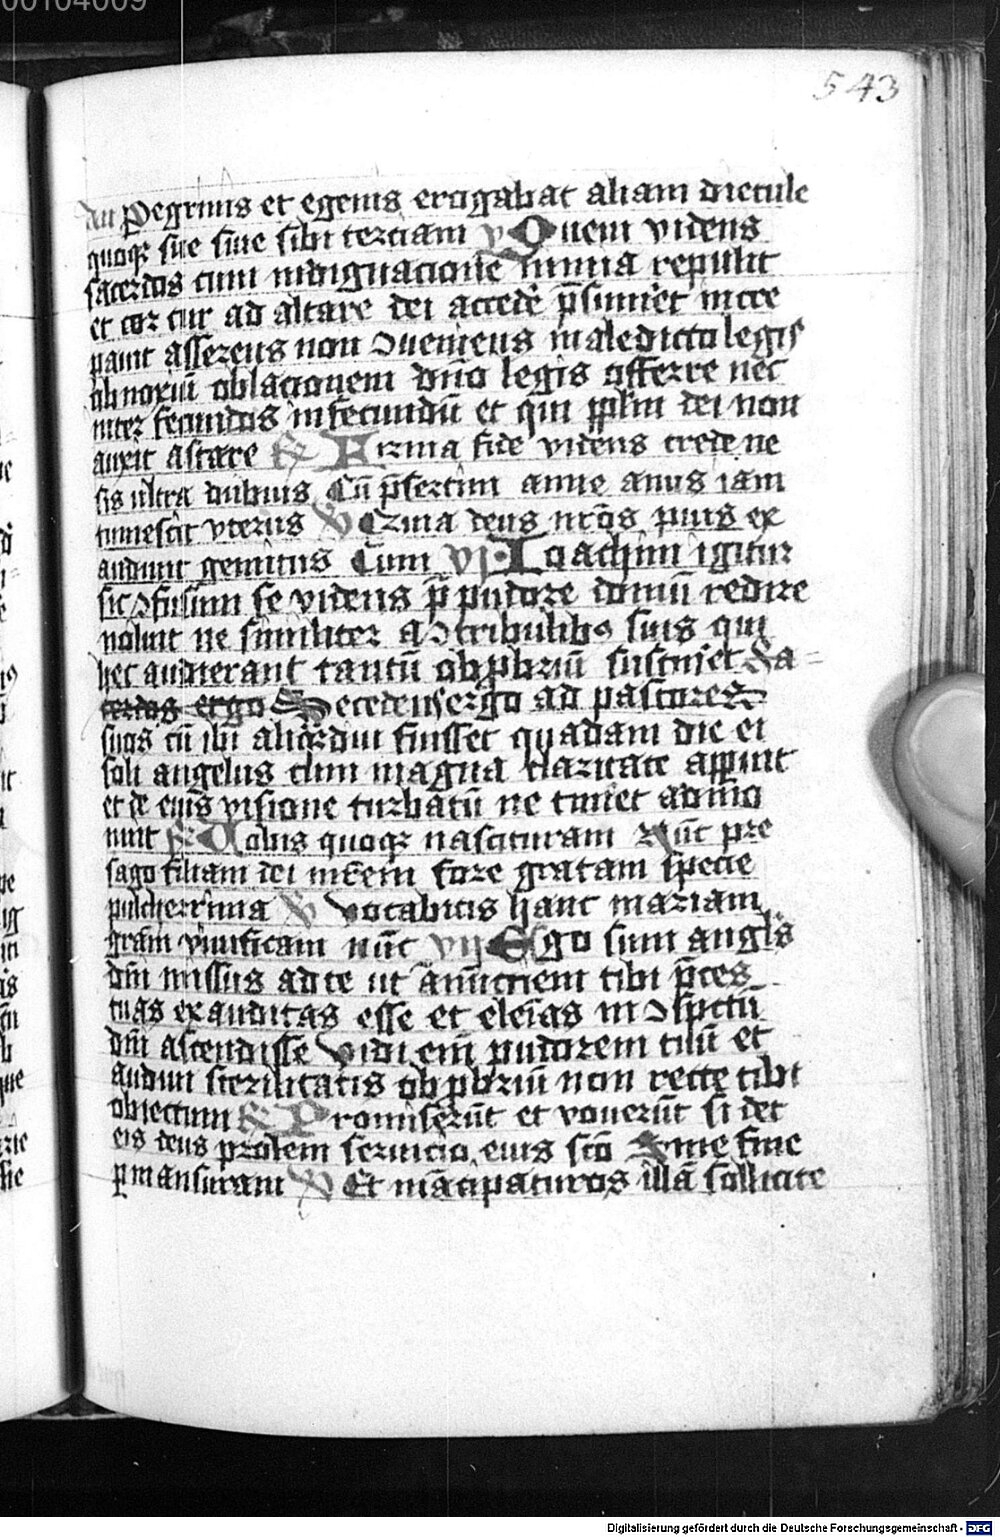 00104009
543
au pegrinis et egenis erogabat aliam dietule
quoqz sue siue sibi terciam v Quem videns
sacerdos cum indignacione nimia repulit
et cor cur ad altare dei accede psumet incre
pauit asserens non ɔueniens maledicto legis
obnoxiū oblacionem dn̄o legis offerre nec
inter fecundos infecundū et qui pplm dei non
auxit astare R Firma fide videns crede ne
sis ultra dubius Cū psertim anne anus iam
tumescit vterus V Czma deus nr̄os pius ex
audiuit gemitus Cum vj Ioachim igitur
sic ɔfusum se videns p̄ pudore domū redire
noluit ne similiter a ɔtribulibꝰ suis qui
hec audierant tantū obpbriū sustinset Sa=
cerdos ergo Secedens ergo ad pastores
suos cū ibi aliqrdiu fuisset quadam die ei
soli angelus cum magna claritate appuit
et de eius visione turbatū ne timet admo
nuit R Nobis quoqz nascituram nūc pre
sago filiam dei mrēm fore gratam specie
pulcherrima V vocabitis hanc mariam
gram viuificam nūc vij Ego sum angls
dn̄i missus ad te ut anūctiem tibi pces
tuas exauditas esse et eleīas in ɔspctū
dn̄i ascendisse vidi em̄ pudorem tuū et
audiui sterilitatis obpbriū non recte tibi
obiectum R Promiserūt et vouerūt si det
eis deus prolem seruicio eius scō Ame sine
pmansuram V Et mācipaturos illā sollicite
Digitalisierung gefördert durch die Deutsche Forschungsgemeinschaft - DFG